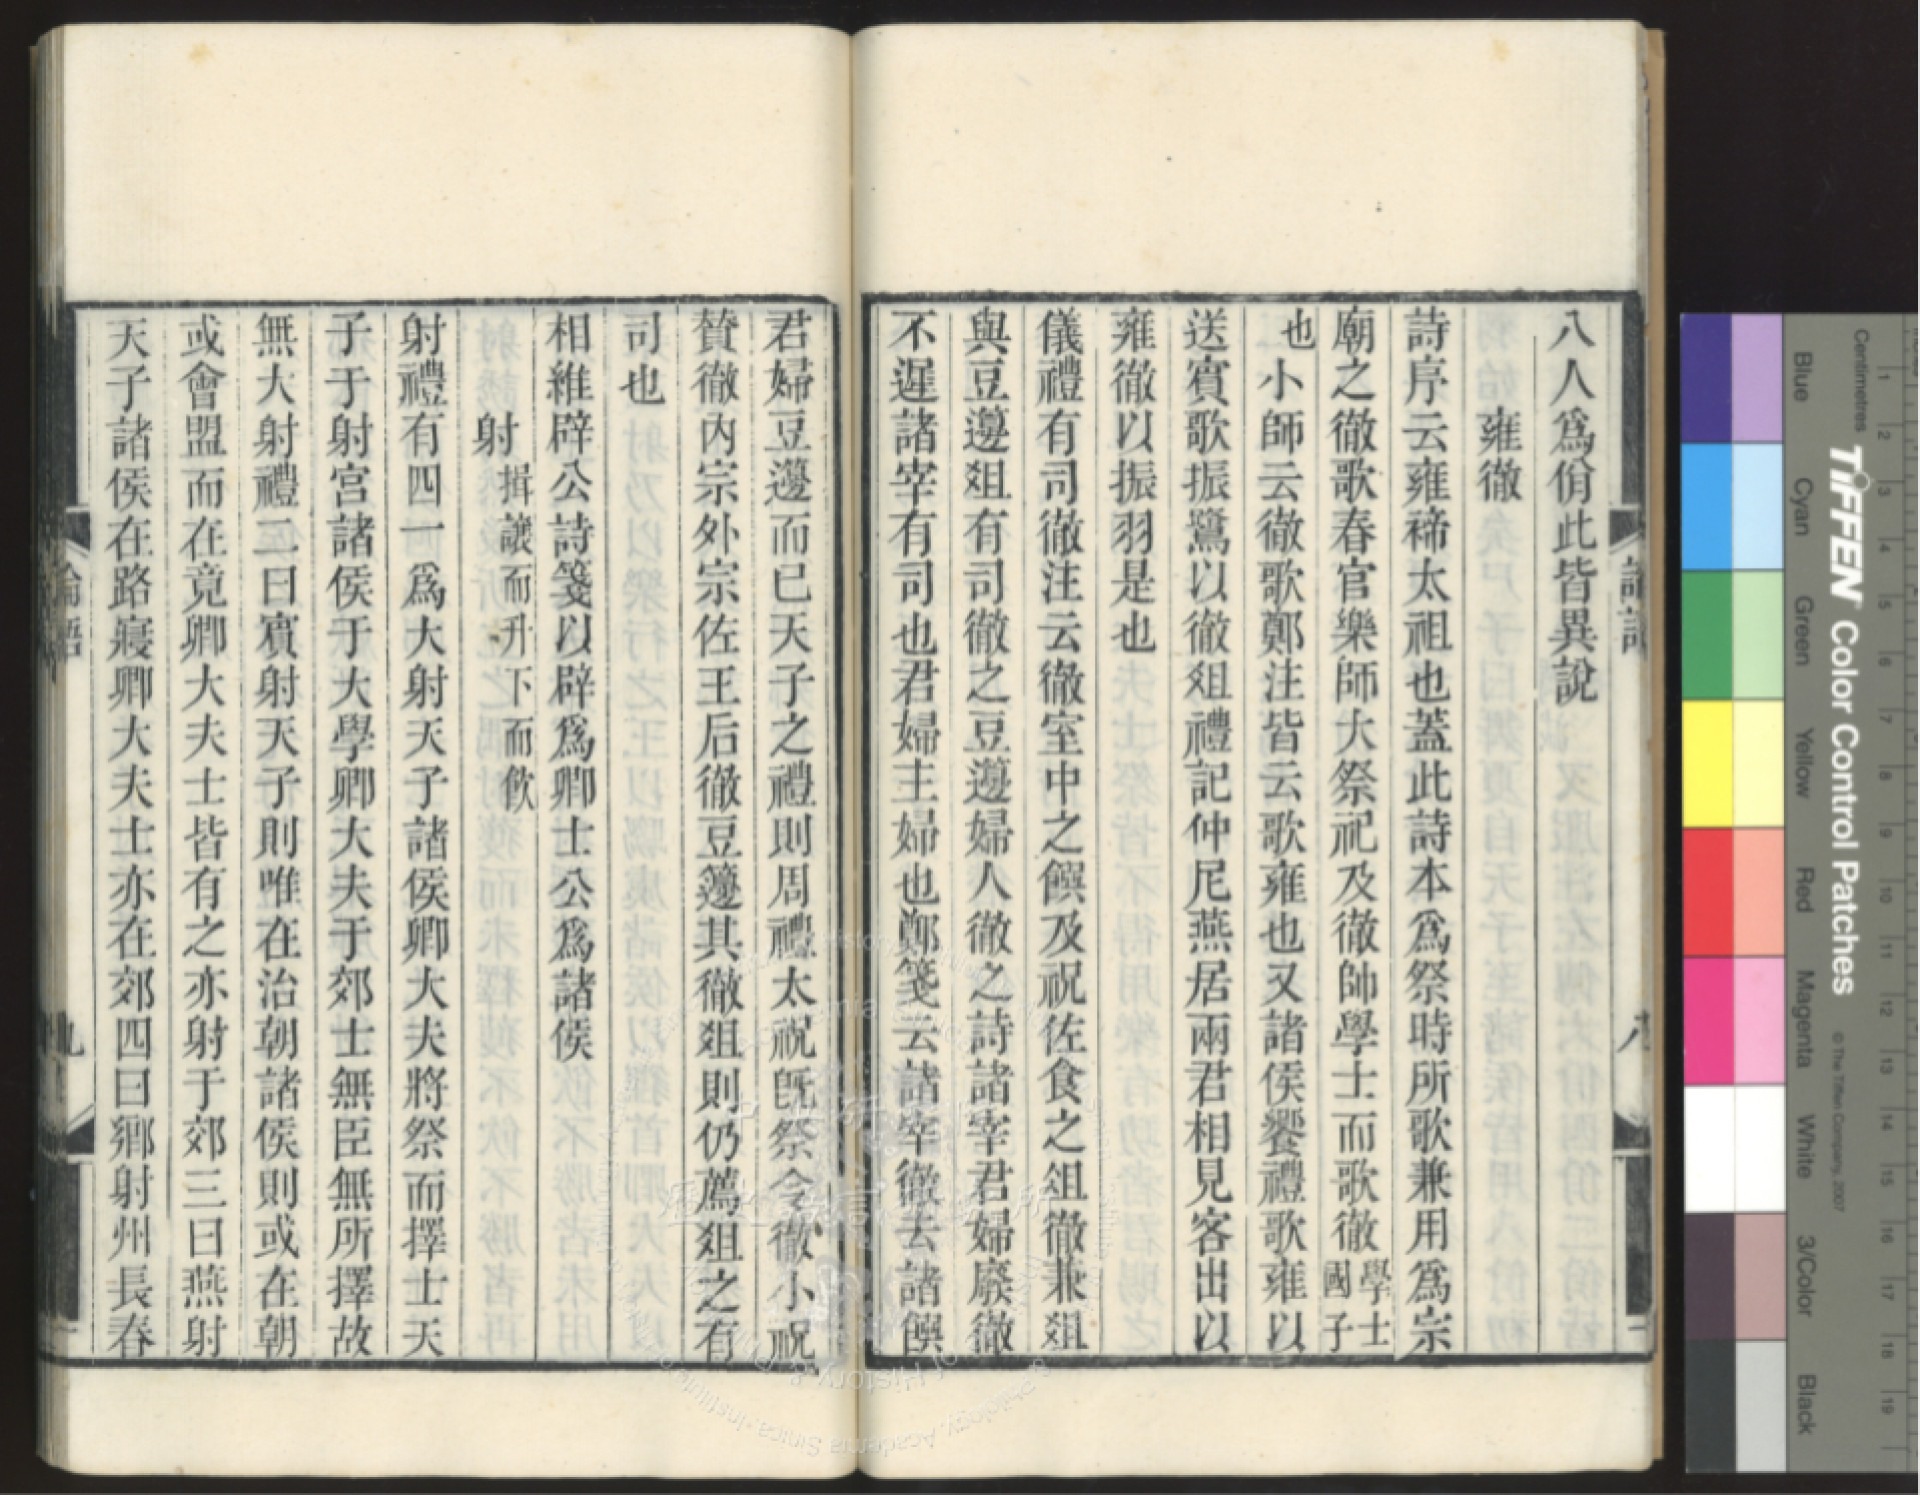 八人爲佾此皆異說
雍徹
詩序云雍禘太祖也蓋此詩本爲祭時所歌兼用爲宗
廟之徹歌春官樂師大祭祀及徹帥學士而歌徹學士國子
也小師云徹歌鄭注皆云歌雍也又諸侯饗禮歌雍以
送賓歌振鷺以徹俎禮記仲尼燕居兩君相見客出以
雍徹以振羽是也
儀禮有司徹注云徹室中之饌及祝佐食之俎徹兼俎
與豆籩俎有司徹之豆籩婦人徹之詩諸宰君婦廢徹
不遲諸宰有司也君婦主婦也鄭箋云諸宰徹去諸饌
君婦豆籩而已天子之禮則周禮太祝旣祭令徹小祝
贊徹內宗外宗佐王后徹豆籩其徹俎則仍薦俎之有
司也
相維辟公詩箋以辟爲卿士公爲諸侯
射揖讓而升下而飲
射禮有四一爲大射天子諸侯卿大夫將祭而擇士天
子于射宮諸侯于大學卿大夫于郊士無臣無所擇故
無大射禮二曰賓射天子則唯在治朝諸侯則或在朝
或會盟而在竟卿大夫士皆有之亦射于郊三曰燕射
天子諸侯在路寢卿大夫士亦在郊四曰鄉射州長春
論語
九
八
TIFFEN Color Control Patches
© The Tiffen Company, 2007
Centimetres
Blue
Cyan
Green
Yellow
Red
Magenta
White
3/Color
Black
1 2 3 4 5 6 7 8 9 10 11 12 13 14 15 16 17 18 19